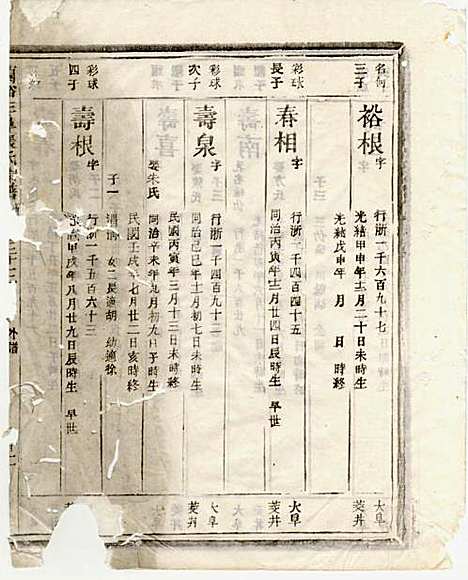 名何
三子
裕根
字
行浙一千六百九十七
光緒甲申年十二月二十日未時生
光緒戊申年 月 日 時終
大阜
菱井
彩球
長子
春相
字
行浙一千四百四十五
同治丙寅年十二月廿四日辰時生 早世
大阜
菱井
彩球
次子
壽泉
字
行浙一千四百九十二
同治己巳年十二月初七日未時生
民國丙寅年三月十三日未時終
娶朱氏
同治辛未年九月初九日子時生
民國壬戌年七月廿二日亥時終
子一
女二長適胡 幼適徐
大阜
菱井
彩球
四子
壽根
字
行浙一千五百六十三
甲戌年八月廿九日辰時生 早世
菱井
外譜